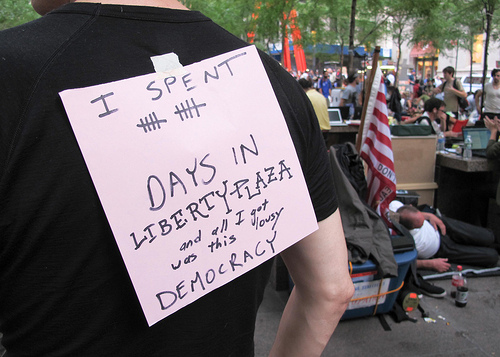 I SPENT
DAYS IN
LIBERTY PLAZA
and all I got
was this lousy
DEMOCRACY